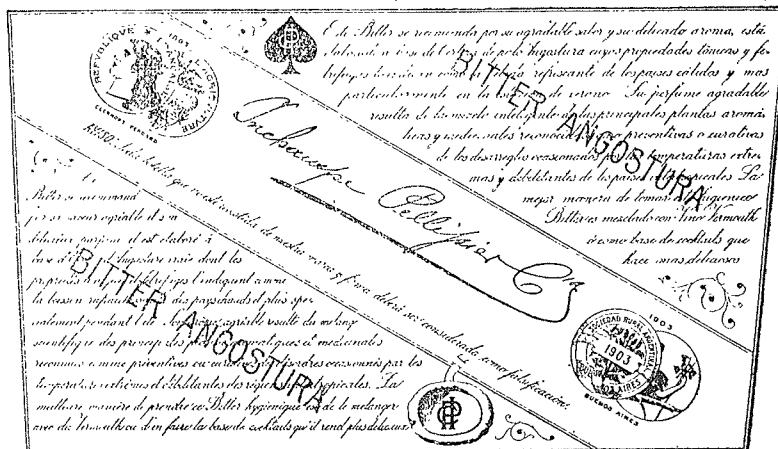 E de Bitter se recomienda por su agradable sabor y su delicado aroma, está
de Angostura cuyas propiedades tónicas y fe-
refrescante de los países cálidos y mas
particularmente en la de verano. Su perfume agradable
resulta de la mezcla inteligente de las principales plantas aromá-
ticas y medicinales reconocidas preventivas o curativas
de los desarreglos ocasionados por las temperaturas extre-
mas y debilitantes de los países tropicales La
mejor manera de tomar
Bitter es mezclado con Vino Vermouth
ó como base de cocktails que
hace mas deliciosos
BITTER ANGOSTURA
REPUBLIQUE
1903
L'AGRICULTURE
Inchauspe Pellissier Cia
AVISO: Toda botella que no esté revestida de nuestra marca y firma deberá ser considerada como falsificación.
Bitter se recommand
par sa saveur agréable et sa
parfum il est elaboré à
base d' Angosture vraie dont les
proprietés l'indiquent comme
la boisson des pays chauds et plus spe-
cialement pendant l'été agréable resulte du melang
scientifique des principales aromatiques et medicinales
reconnus comme preventives ou curatives des desordres occasionnés par les
temperatures extrêmes et debilitantes des regions tropicales. La
meilleure manière de prendre ce Bitter hygienique est de le melanger
avec du Vermouth ou d'en faire la base de cocktails qu'il rend plus delicieux
BITTER ANGOSTURA
1903
SOCIEDAD RURAL ARGENTINA
1903
BUENOS AIRES